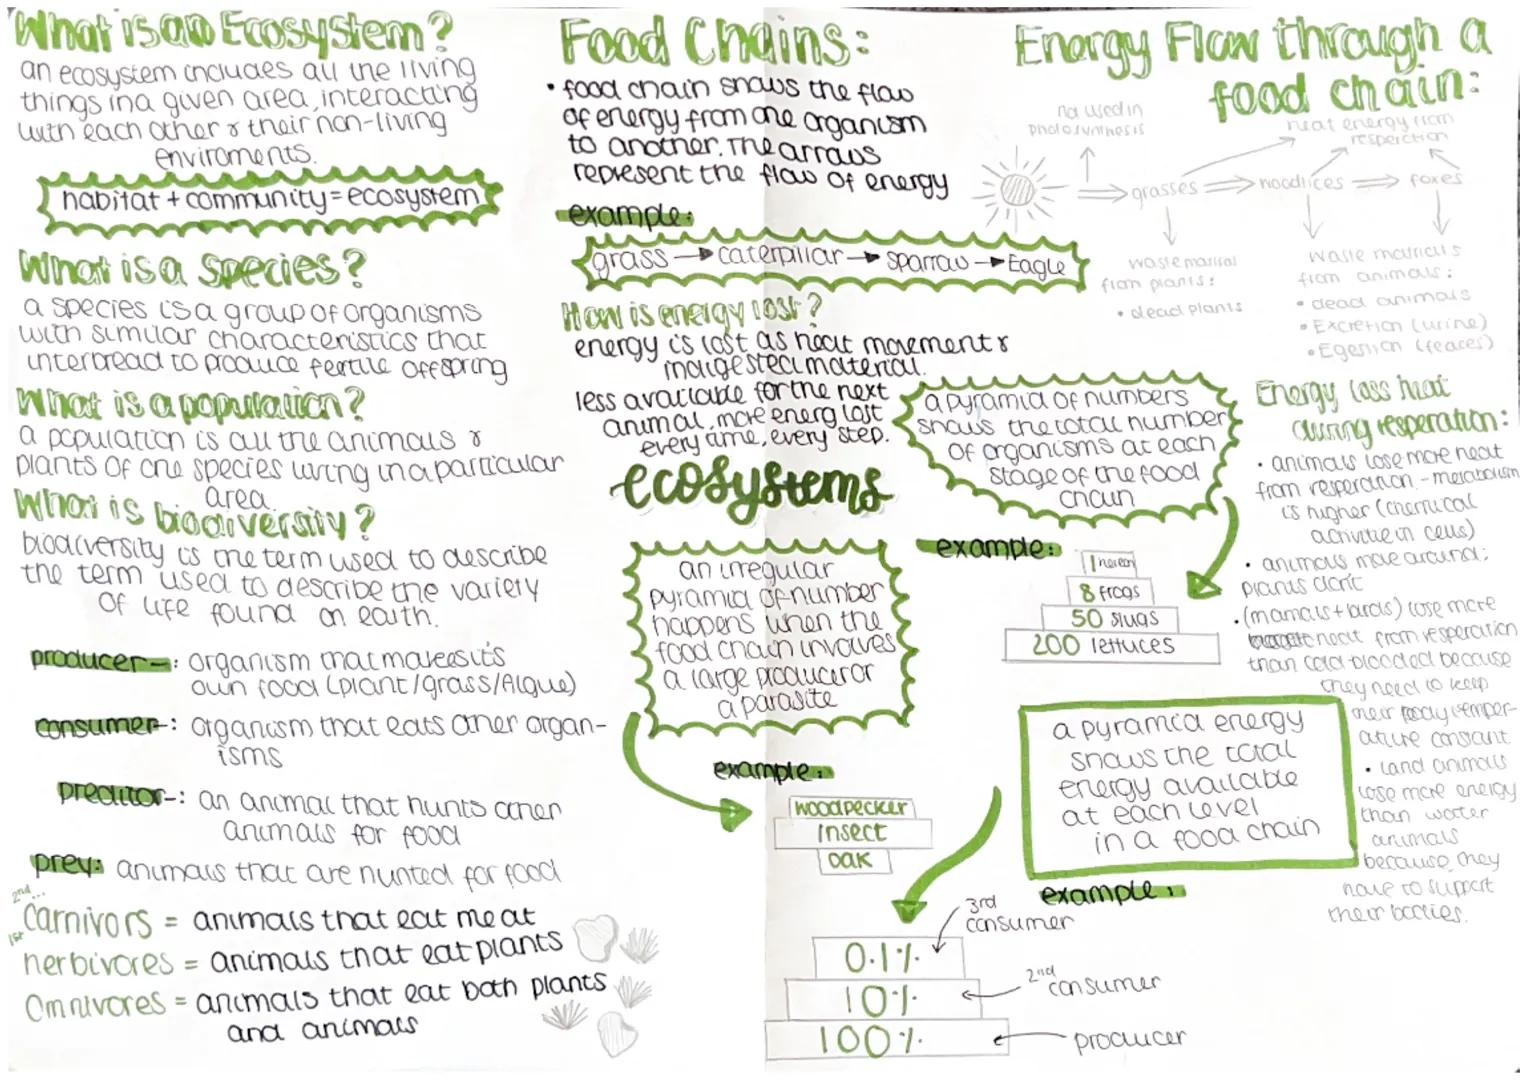 What is an Ecosystem?
an ecosystem includes all the living
things in a given area, interacting
with each other & their non-living
enviroments.
habitat + community = ecosystem
What is a Species?
a species is a group of organisms
with similar characteristics that
interbread to produce fertile offspring
What is a population?
a population is all the animals &
plants of one species living in a particular
area.
What is biodiversity?
biodiversity is the term used to describe
the term used to describe the variety
of life found on earth.
producer-: organism that makes its
own food (plant/grass/Algue)
consumer-: organism that eats other organ-
isms
preditor-: an animal that hunts other
animals for food
prey: animals that are hunted for food
2nd...
Carnivors = animals that eat meat
1st
herbivores = animals that eat plants
Omnivores = animals that eat both plants
and animals
Food Chains:
• food chain shows the flow
of energy from one organism
to another. The arrows
represent the flow of energy
example:
grass → caterpillar → sparrow → Eagle
How is energy lost?
energy is lost as heat movement &
indigested material.
less available for the next
animal, more energ lost
every time, every step.
ecosystems
an irregular
pyramid of number
happens when the
food chain involves
a large producer or
a parasite
example:
woodpecker
insect
oak
a pyramid of numbers
shows the total number
of organisms at each
stage of the food
chain
example:
1 heron
8 frogs
50 slugs
200 lettuces
a pyramid energy
shows the total
energy available
at each level
in a food chain
example:
3rd
consumer
0.1%
2nd
consumer
10%
100%
producer
Energy Flow through a
food chain:
not used in
photosynthesis
heat energy from
resperation
grasses ⇒ woodlices ⇒ foxes
waste matrial
from plants:
• dead plants
waste matrials
from animals:
• dead animals
• Excretion (urine)
• Egestion (feaces)
Energy loss heat
during resperation:
• animals lose more heat
from resperation - metabolism
is higher (chemical
activitie in cells)
• animals move around;
plants don't
• (mamals + birds) lose more
heat from resperation
than cold-blooded because
they need to keep
their body temper-
ature constant
• land animals
lose more energy
than water
animals
because they
have to support
their bodies.